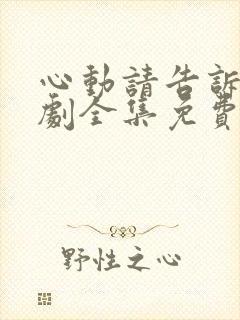 心動請告訴
劇全集免費
野性之心